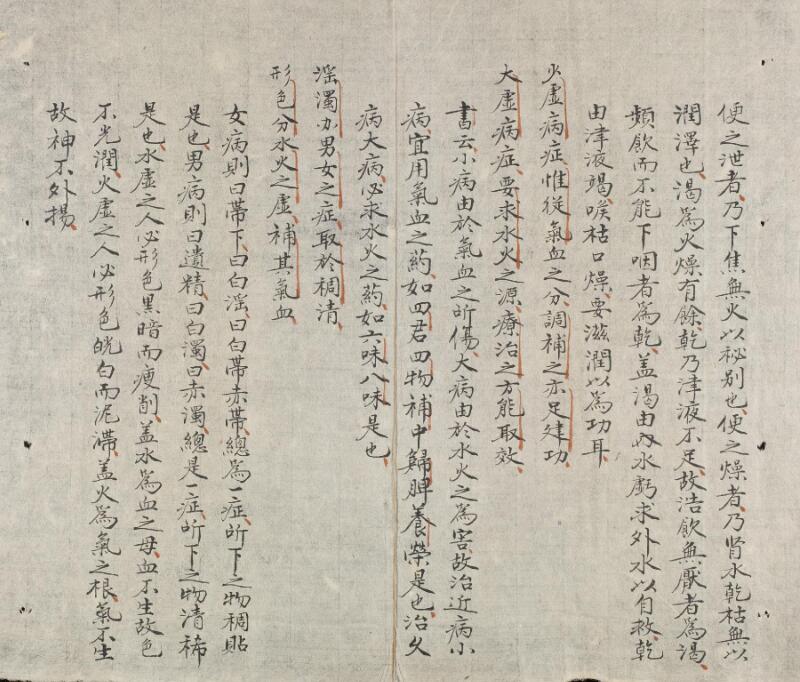 便之泄者乃下焦無火以秘别也便之燥者乃肾水乾枯無以
潤澤也渴為火燥有餘乾乃津液不足故浩飲無厭者為渴
頻飲而不能下咽者為乾盖渴由内水虧求外水以自救乾
由津液竭喉枯口燥要滋潤以為功耳
火虚病症惟従氣血之分調補之亦足建功
大虚病症要求水火之源療治之方能取效
書云小病由於氣血之所傷大病由於水火之為害故治近病小
病宜用氣血之药如四君四物補中歸脾養榮是也治久
病大病必求水火之药如六味八味是也
淫濁办男女之症取於稠清
形色分水火之虚補其氣血
女病則曰帶下曰白淫曰白帶赤帶總為一症所下之物稠貼
是也男病則曰遺精曰白濁曰赤濁總是一症所下之物清稀
是也水虚之人必形色黑暗而瘦削盖水為血之母血不生故色
不光潤火虚之人必形色㿠白而泥滯盖火為氣之根氣不生
故神不外揚